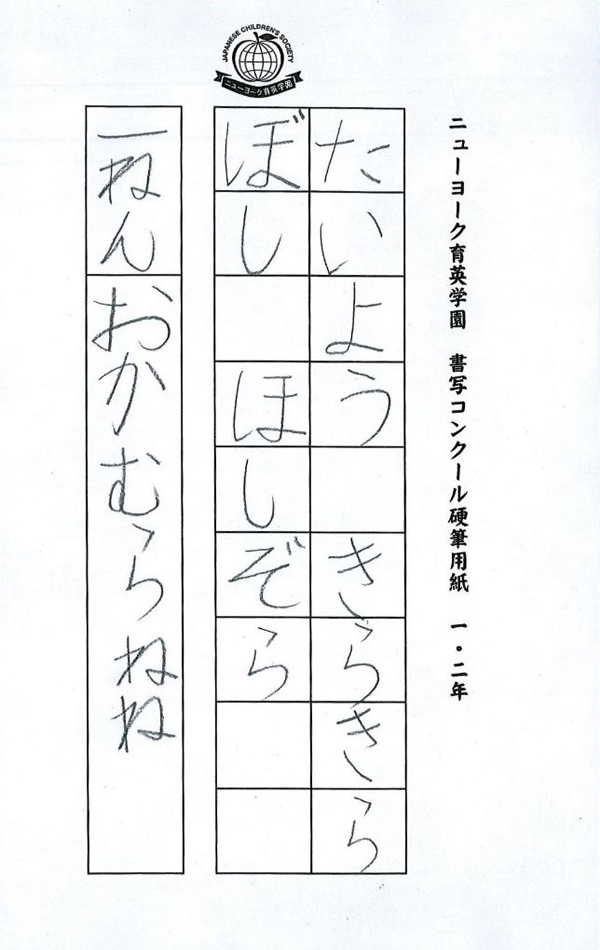 JAPANESE CHILDREN'S SOCIETY
ニューヨーク育英学園
ニューヨーク育英学園 書写コンクール硬筆用紙 一・二年
たいよう きらきら
ぼし ほしぞら
一ねん おかむらねね